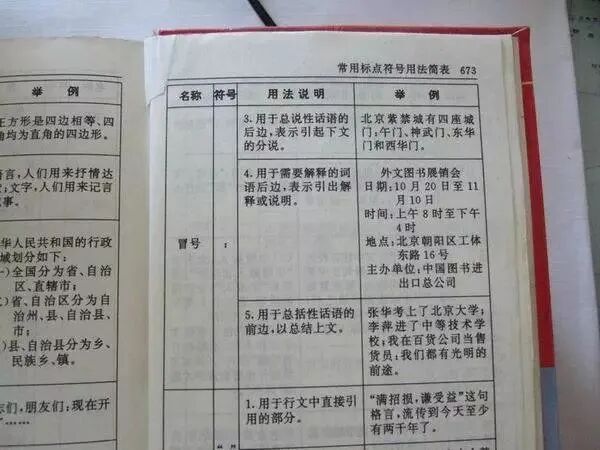 举 例
正方形是四边相等、四
角均为直角的四边形。
语言,人们用来抒情达
文字,人们用来记言
华人民共和国的行政
域划分如下:
全国分为省、自治
区、直辖市;
省、自治区分为自
治州、县、自治县、
市;
县、自治县分为乡、
民族乡、镇。
朋友们:现在开
……
常用标点符号用法简表 673
名称 符号 用法说明 举 例
冒号 :
3. 用于总说性话语的
后边,表示引起下文
的分说。
北京紫禁城有四座城
门:午门、神武门、东华
门和西华门。
4. 用于需要解释的词
语后边,表示引出解
释或说明。
外文图书展销会
日期:10 月 20 日至 11
月 10 日
时间:上午 8 时至下午
4 时
地点:北京朝阳区工体
东路 16 号
主办单位:中国图书进
出口总公司
5. 用于总括性话语的
前边,以总结上文。
张华考上了北京大学;
李萍进了中等技术学
校;我在百货公司当售
货员:我们都有光明的
前途。
1. 用于行文中直接引
用的部分。
“满招损,谦受益”这句
格言,流传到今天至少
有两千年了。